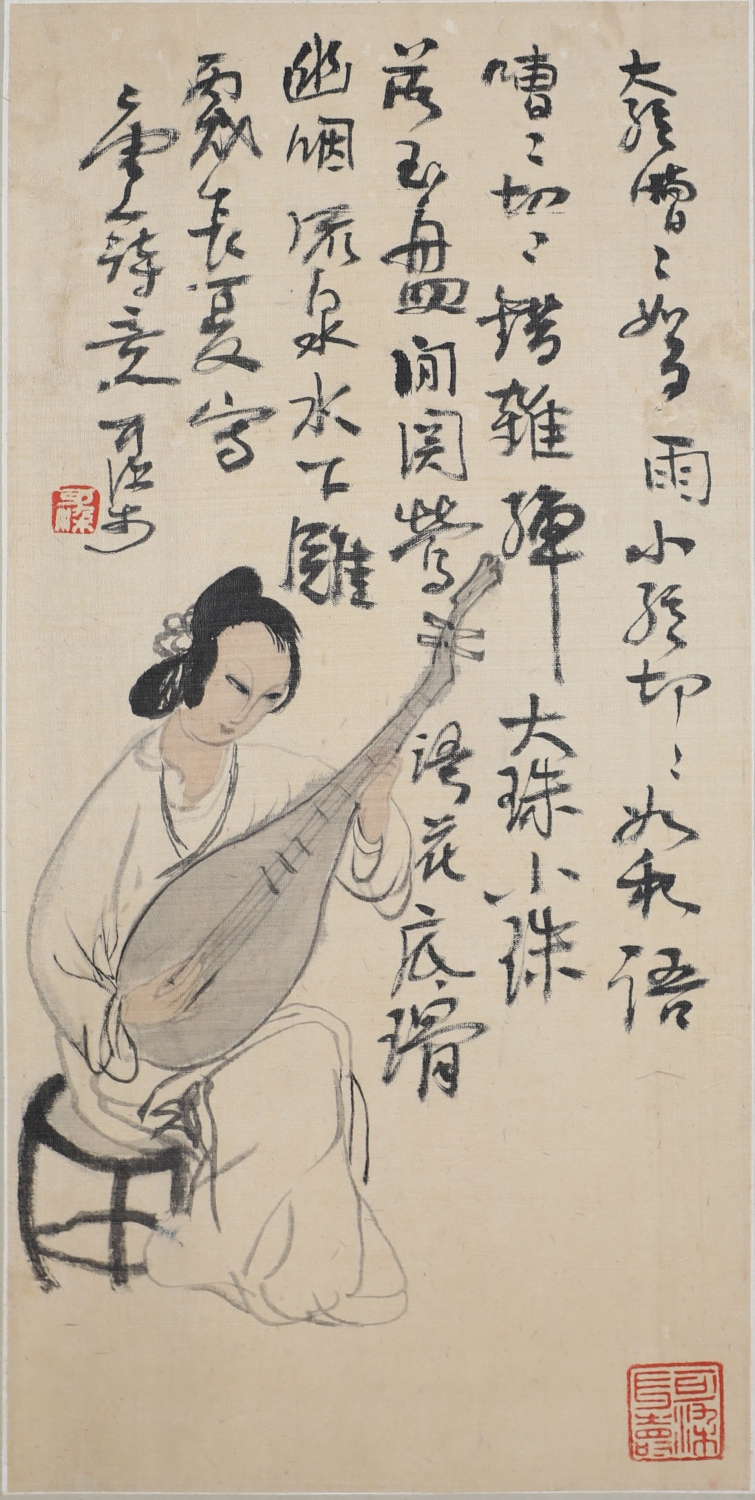 大弦嘈〻如急雨小弦切〻如私語
嘈〻切〻錯雜彈大珠小珠
落玉盤間関鶯語花底滑
幽咽流泉水下難
長夏寫
人詩意可染
可染
可染長壽